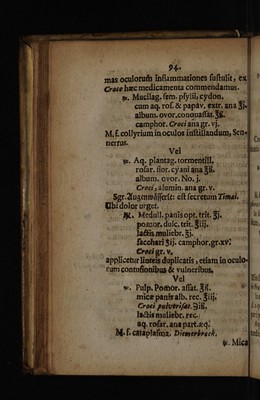 94.
mas oculorum inflammationes sustulit, ex
Croco hæc medicamenta commendamus.
℞. Mucilag. sem. psylii, cydon.
cum aq. ros. & papav. extr. ana ℥j.
album. ovor. conquassat. ℥ß.
camphor. Croci ana gr. vj.
M. f. collyrium in oculos instillandum, Sen-
nertus.
Vel
℞. Aq. plantag. tormentill.
rosar. flor. cyani ana ℥ß.
album. ovor. No. j.
Croci, alumin. ana gr. v.
Sgr. est secretum Timæi.
Ubi dolor urget.
℞. Medull. panis opt. trit. ℥j.
pomor. dulc. trit. ℥iij.
lactis muliebr. ℥j.
sacchari ʒij. camphor. gr. xv.
Croci gr. v.
applicetur linteis duplicatis, etiam in oculo-
rum contusionibus & vulneribus.
Vel
℞. Pulp. Pomor. assat. ℥ß.
micæ panis alb. rec. ʒiij.
Croci pulverisat. ℈iß.
lactis muliebr. rec.
aq. rosar. ana part. æq.
M. f. cataplasma. Diemerbroek.
℞. Mica